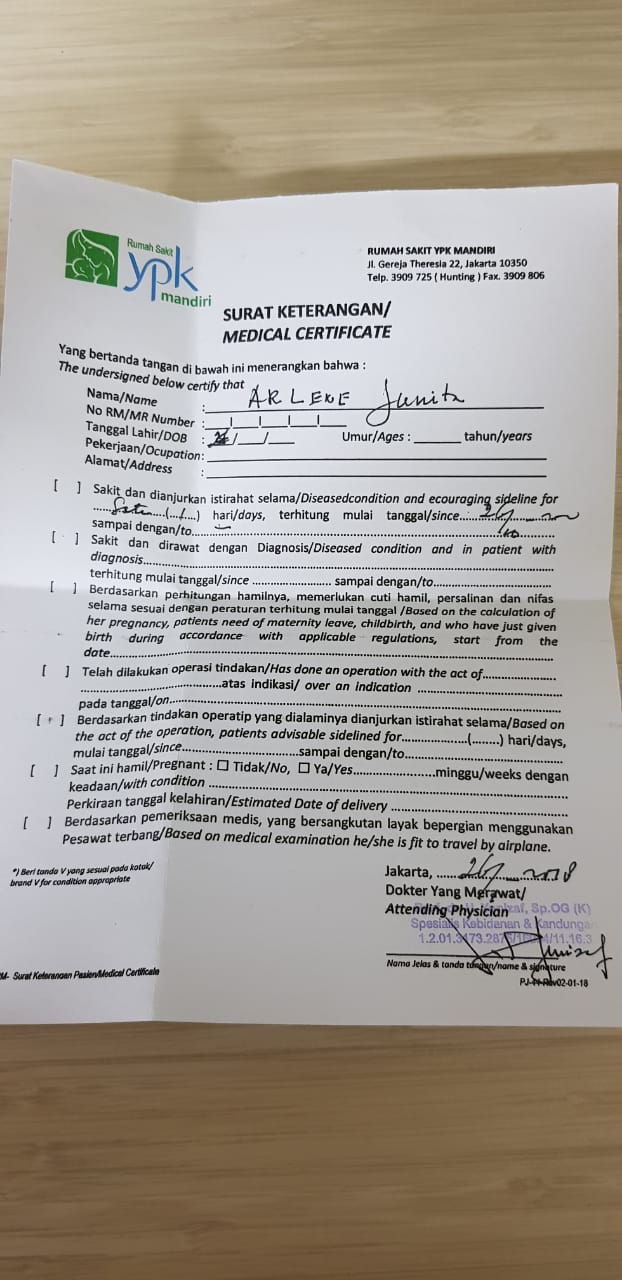 Rumah Sakit
ypk
mandiri
RUMAH SAKIT YPK MANDIRI
Jl. Gereja Theresia 22, Jakarta 10350
Telp. 3909 725 ( Hunting ) Fax. 3909 806
SURAT KETERANGAN/
MEDICAL CERTIFICATE
Yang bertanda tangan di bawah ini menerangkan bahwa :
The undersigned below certify that
Nama/Name : ARLENE Junita
No RM/MR Number :
Tanggal Lahir/DOB : / / Umur/Ages : tahun/years
Pekerjaan/Ocupation:
Alamat/Address :
[ ] Sakit dan dianjurkan istirahat selama/Diseasedcondition and ecouraging sideline for
(...) hari/days, terhitung mulai tanggal/since
sampai dengan/to
[ ] Sakit dan dirawat dengan Diagnosis/Diseased condition and in patient with
diagnosis
terhitung mulai tanggal/since sampai dengan/to
[ ] Berdasarkan perhitungan hamilnya, memerlukan cuti hamil, persalinan dan nifas
selama sesuai dengan peraturan terhitung mulai tanggal /Based on the calculation of
her pregnancy, patients need of maternity leave, childbirth, and who have just given
birth during accordance with applicable regulations, start from the
date
[ ] Telah dilakukan operasi tindakan/Has done an operation with the act of
atas indikasi/ over an indication
pada tanggal/on
[ ] Berdasarkan tindakan operatip yang dialaminya dianjurkan istirahat selama/Based on
the act of the operation, patients advisable sidelined for (........) hari/days,
mulai tanggal/since sampai dengan/to
[ ] Saat ini hamil/Pregnant : ☐ Tidak/No, ☐ Ya/Yes minggu/weeks dengan
keadaan/with condition
Perkiraan tanggal kelahiran/Estimated Date of delivery
[ ] Berdasarkan pemeriksaan medis, yang bersangkutan layak bepergian menggunakan
Pesawat terbang/Based on medical examination he/she is fit to travel by airplane.
*) Beri tanda V yang sesuai pada kotak/
brand V for condition appropriate
Jakarta, 2018
Dokter Yang Merawat/
Attending Physician Sp.OG (K)
Spesialis Kebidanan & Kandungan
Nama Jelas & tanda tangan/name & signature
PJ- Rev02-01-18
M- Surat Keterangan Pasien/Medical Certificate